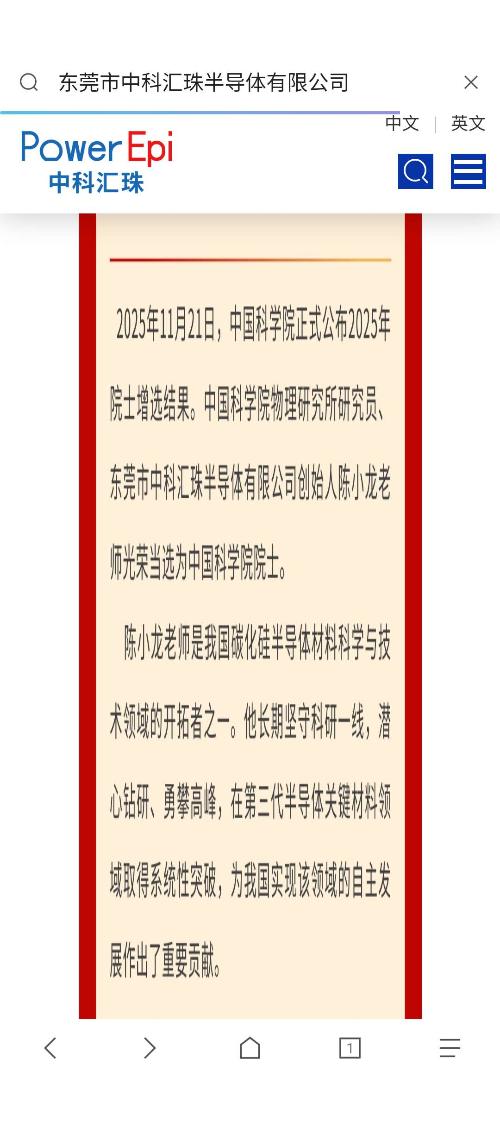 东莞市中科汇珠半导体有限公司
中文 | 英文
PowerEpi
中科汇珠
2025年11月21日，中国科学院正式公布2025年
院士增选结果。中国科学院物理研究所研究员、
东莞市中科汇珠半导体有限公司创始人陈小龙老
师光荣当选为中国科学院院士。
陈小龙老师是我国碳化硅半导体材料科学与技
术领域的开拓者之一。他长期坚守科研一线，潜
心钻研、勇攀高峰，在第三代半导体关键材料领
域取得系统性突破，为我国实现该领域的自主发
展作出了重要贡献。
1